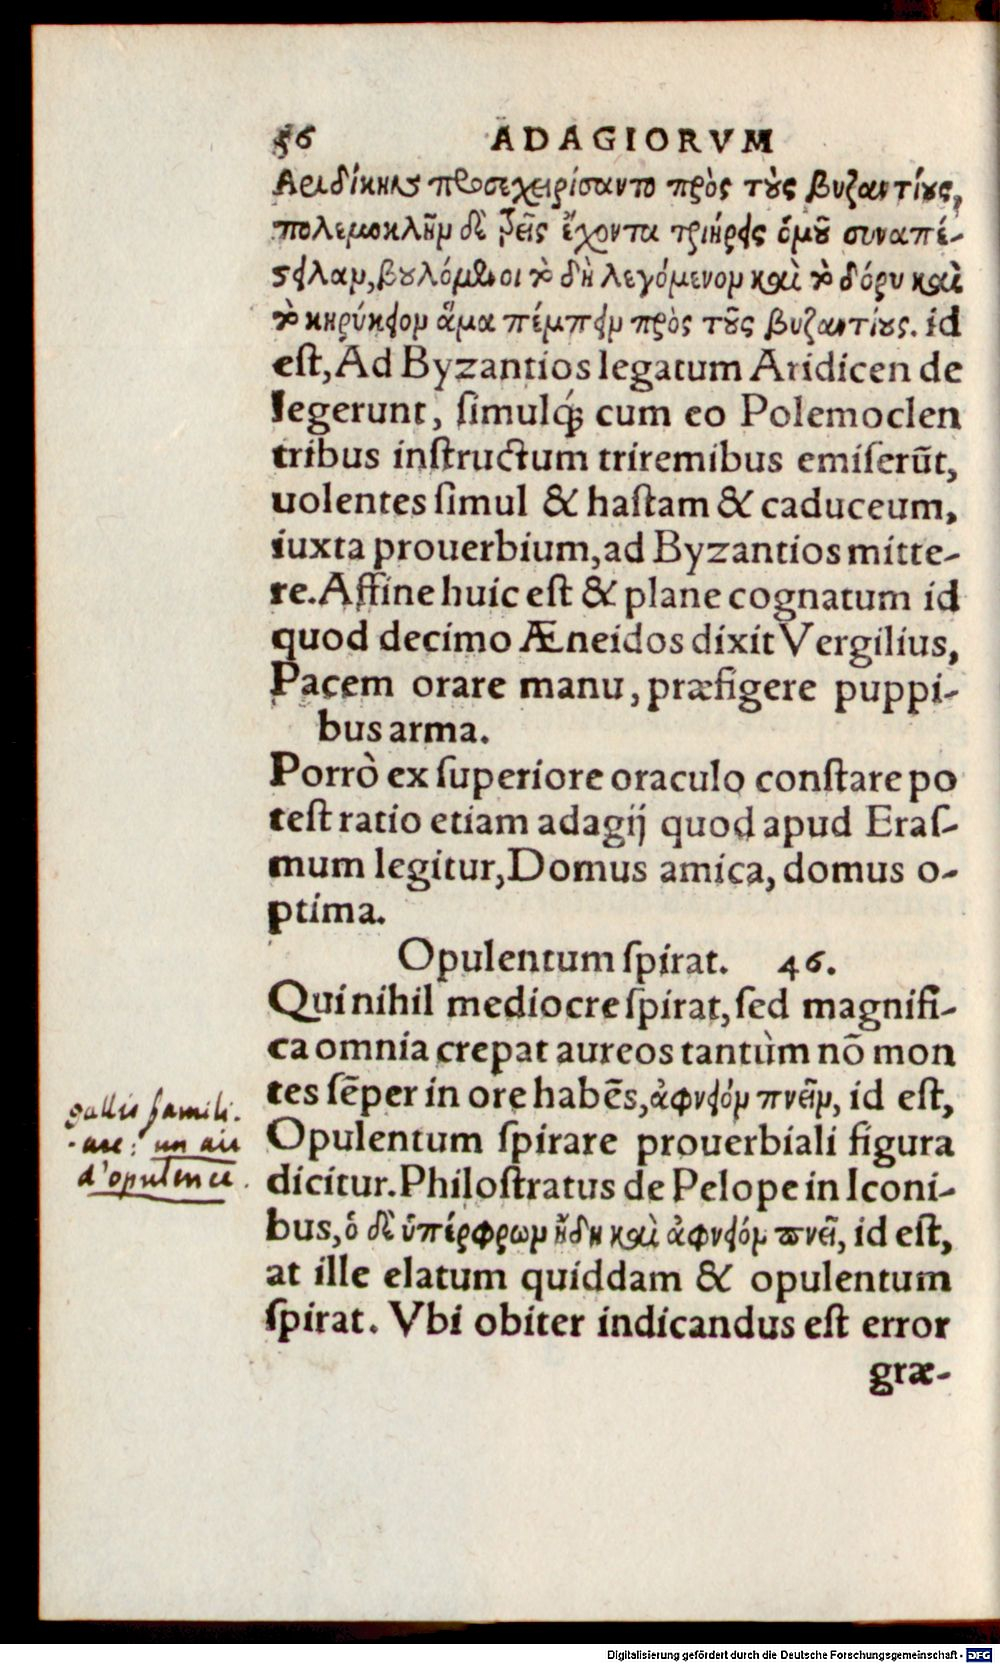 56 ADAGIORVM
Αριδίκης προσεχειρίσαντο πρὸς τȣ̀ς βυζαντίȣς,
πολεμοκλῆμ δὲ τρεῖς ἔχοντα τριήρεις ὁμȣ͂ συναπέ-
στειλαν, βȣλόμενοι τὸ δὴ λεγόμενομ καὶ τὸ δόρυ καὶ
τὸ κηρύκειομ ἅμα πέμπειμ πρὸς τȣ͂ς βυζαντίȣς. id
eſt, Ad Byzantios legatum Aridicen de
legerunt, ſimulq́; cum eo Polemoclen
tribus inſtructum triremibus emiſerūt,
uolentes ſimul & haſtam & caduceum,
iuxta prouerbium, ad Byzantios mitte-
re. Affine huic eſt & plane cognatum id
quod decimo Æneidos dixit Vergilius,
Pacem orare manu, præfigere puppi-
bus arma.
Porrò ex ſuperiore oraculo conſtare po
teſt ratio etiam adagij quod apud Eraſ-
mum legitur, Domus amica, domus o-
ptima.
Opulentum ſpirat. 46.
Qui nihil mediocre ſpirat, ſed magnifi-
ca omnia crepat aureos tantùm nō mon
tes sēper in ore habēs, ἀφνειόμ πνεῖμ, id eſt,
gallis famili.
-are: un air
d'opulence.
Opulentum ſpirare prouerbiali figura
dicitur. Philoſtratus de Pelope in Iconi-
bus, ὁ δὲ ὑπέρφρωμ ἤδη καὶ ἀφνειόμ πνεῖ, id eſt,
at ille elatum quiddam & opulentum
ſpirat. Vbi obiter indicandus eſt error
græ-
Digitalisierung gefördert durch die Deutsche Forschungsgemeinschaft - DFG